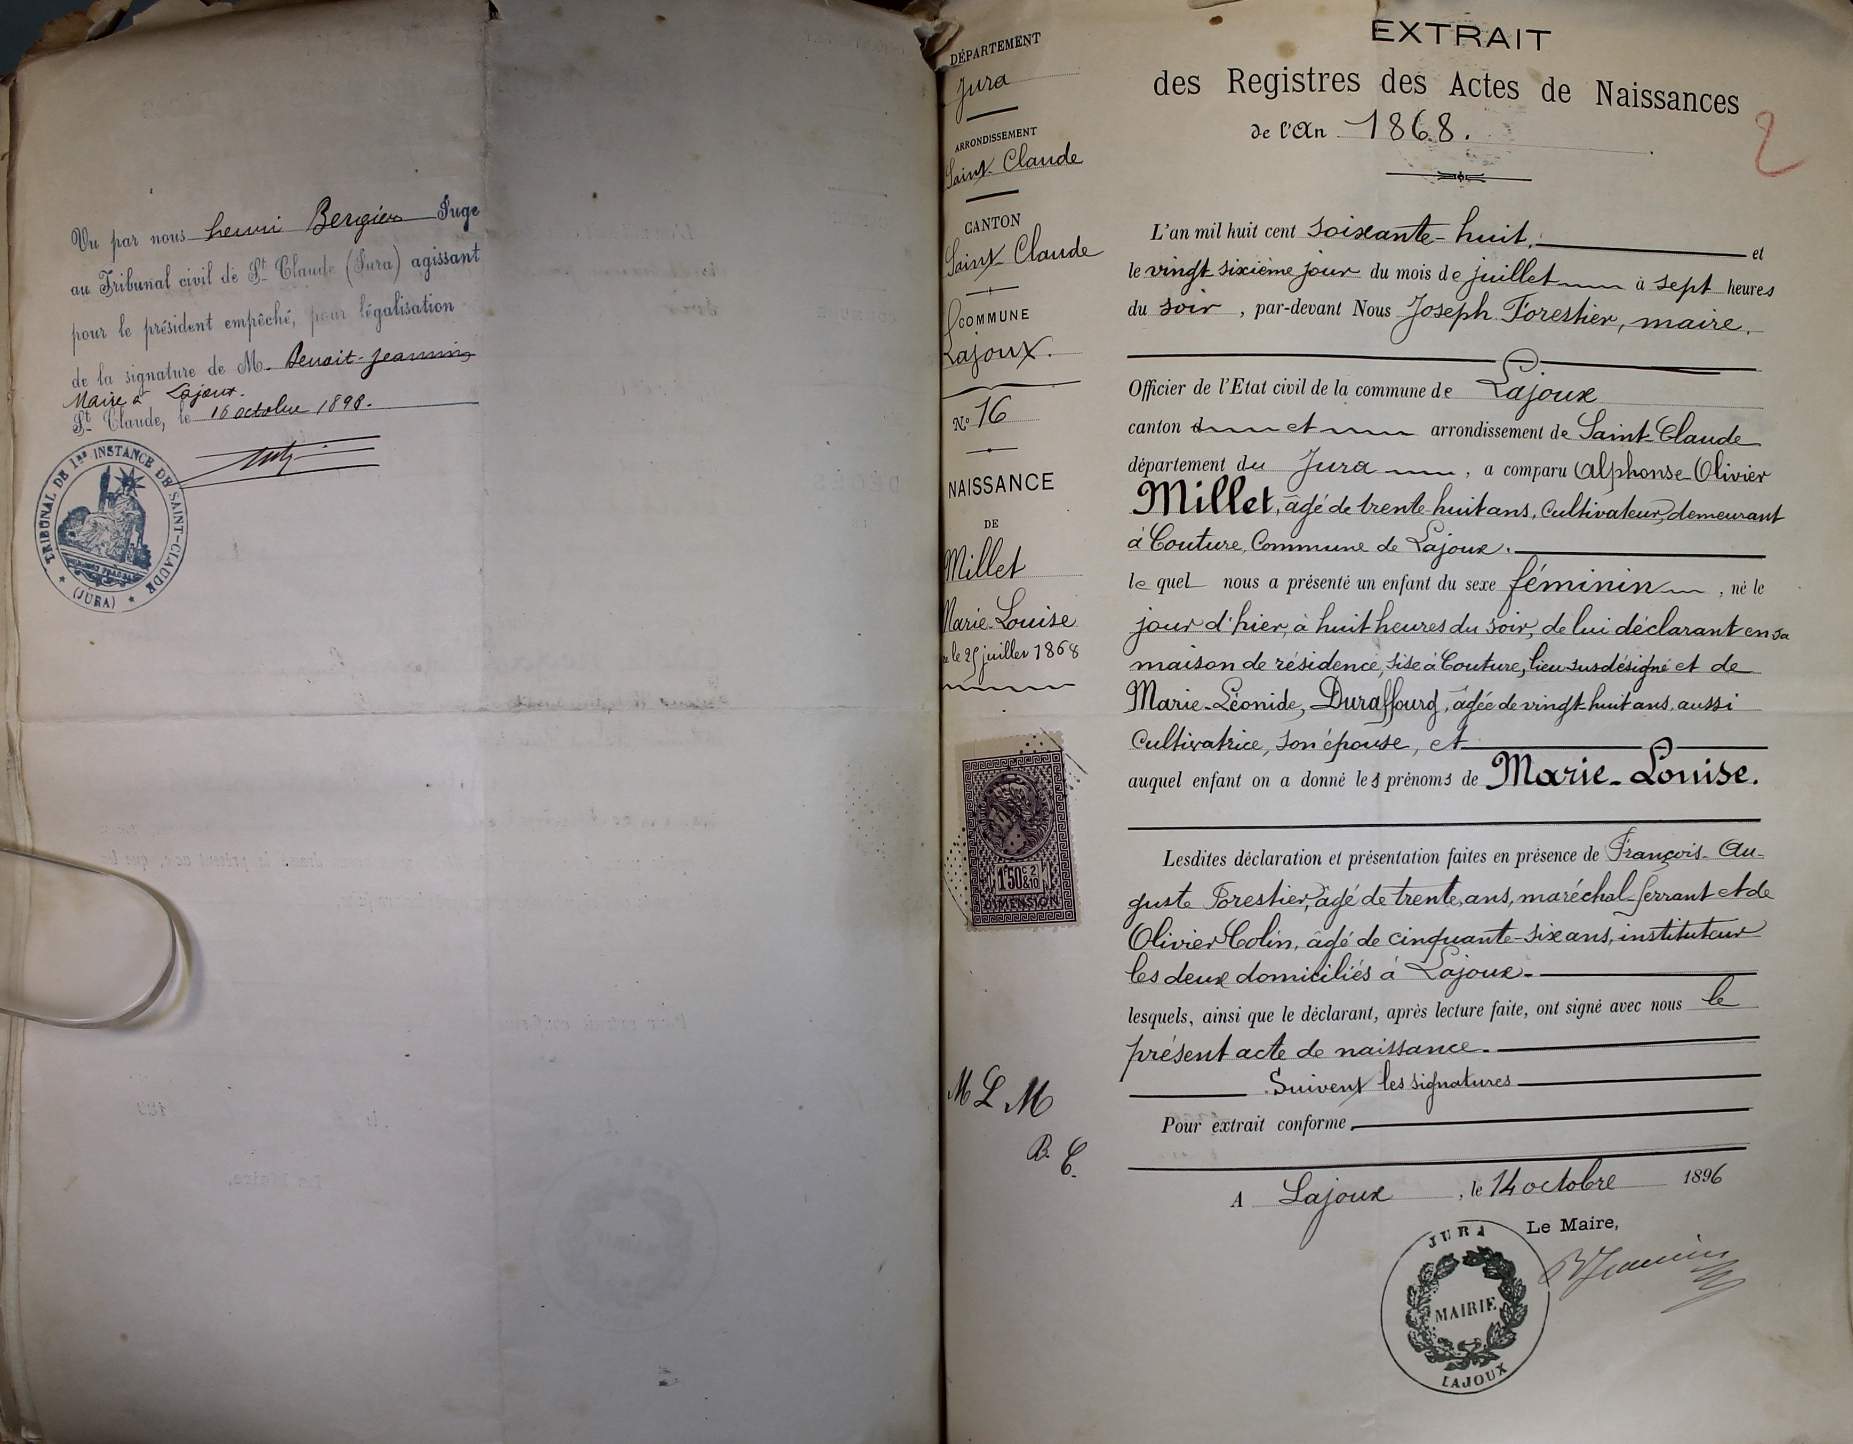 Vu par nous henri Bergier Juge
au Tribunal civil de St Claude (Jura) agissant
pour le président empêché, pour légalisation
de la signature de M. Benoit-Jeannin
Maire à Lajoux.
St Claude, le 16 octobre 1898.
TRIBUNAL DE 1re INSTANCE DE SAINT-CLAUDE
(JURA)
DÉPARTEMENT
Jura
ARRONDISSEMENT
Saint-Claude
CANTON
Saint-Claude
COMMUNE
Lajoux.
No 16
NAISSANCE
DE
Millet
Marie-Louise
le 25 juillet 1868
1F50c 2 &10
DIMENSION
M L M
B. C.
EXTRAIT
des Registres des Actes de Naissances
de l'An 1868.
2
L'an mil huit cent soixante-huit, et
le vingt-sixième jour du mois de juillet à sept heures
du soir, par-devant Nous Joseph Forestier, maire,
Officier de l'Etat civil de la commune de Lajoux
canton d et arrondissement de Saint-Claude
département du Jura, a comparu Alphonse-Olivier
Millet, âgé de trente-huit ans, cultivateur, demeurant
à Couture, Commune de Lajoux.
lequel nous a présenté un enfant du sexe féminin, né le
jour d'hier, à huit heures du soir, de lui déclarant en sa
maison de résidence, sise à Couture, lieu susdésigné et de
Marie-Léonide, Duraffourg, âgée de vingt-huit ans, aussi
cultivatrice, son épouse, et
auquel enfant on a donné les prénoms de Marie-Louise.
Lesdites déclaration et présentation faites en présence de François-Au-
guste Forestier, âgé de trente ans, maréchal-ferrant et de
Olivier Colin, âgé de cinquante-six ans, instituteur
les deux domiciliés à Lajoux.
lesquels, ainsi que le déclarant, après lecture faite, ont signé avec nous le
présent acte de naissance.
Suivent les signatures
Pour extrait conforme,
A Lajoux, le 14 octobre 1896
Le Maire,
B Jeannin
JURA
MAIRIE
LAJOUX